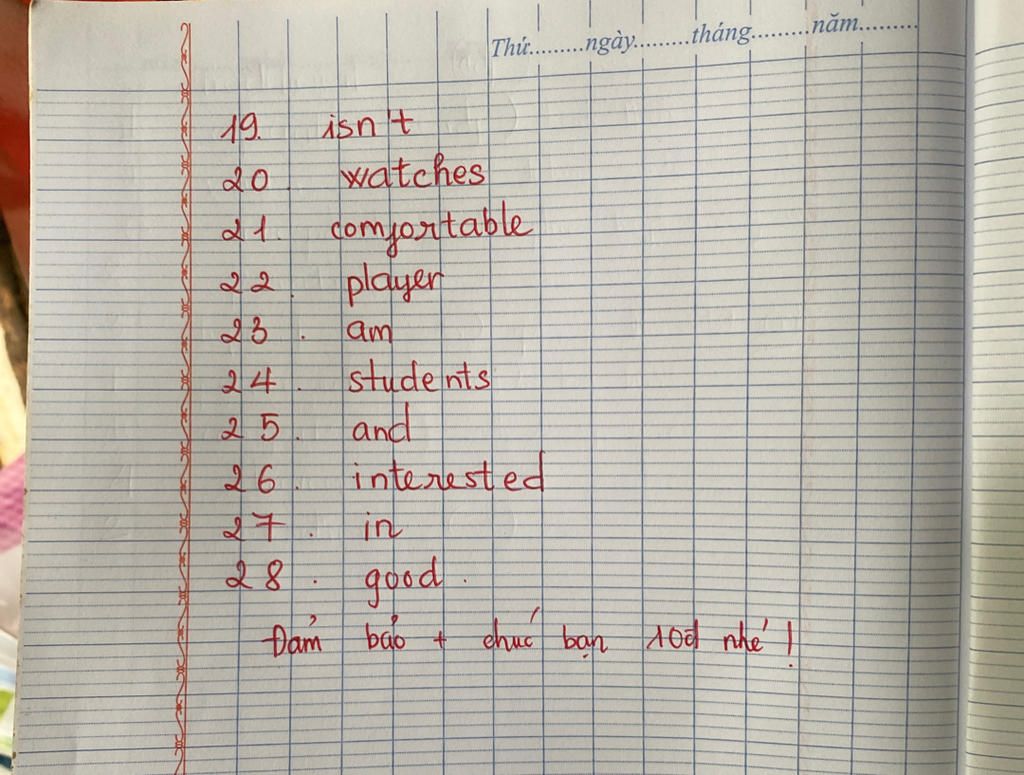 Thứ.........ngày.........tháng.........năm.........
19. isn't
20. watches
21. comfortable
22. player
23. am
24. students
25. and
26. interested
27. in
28. good.
Đảm bảo + chúc bạn 10đ nhé!